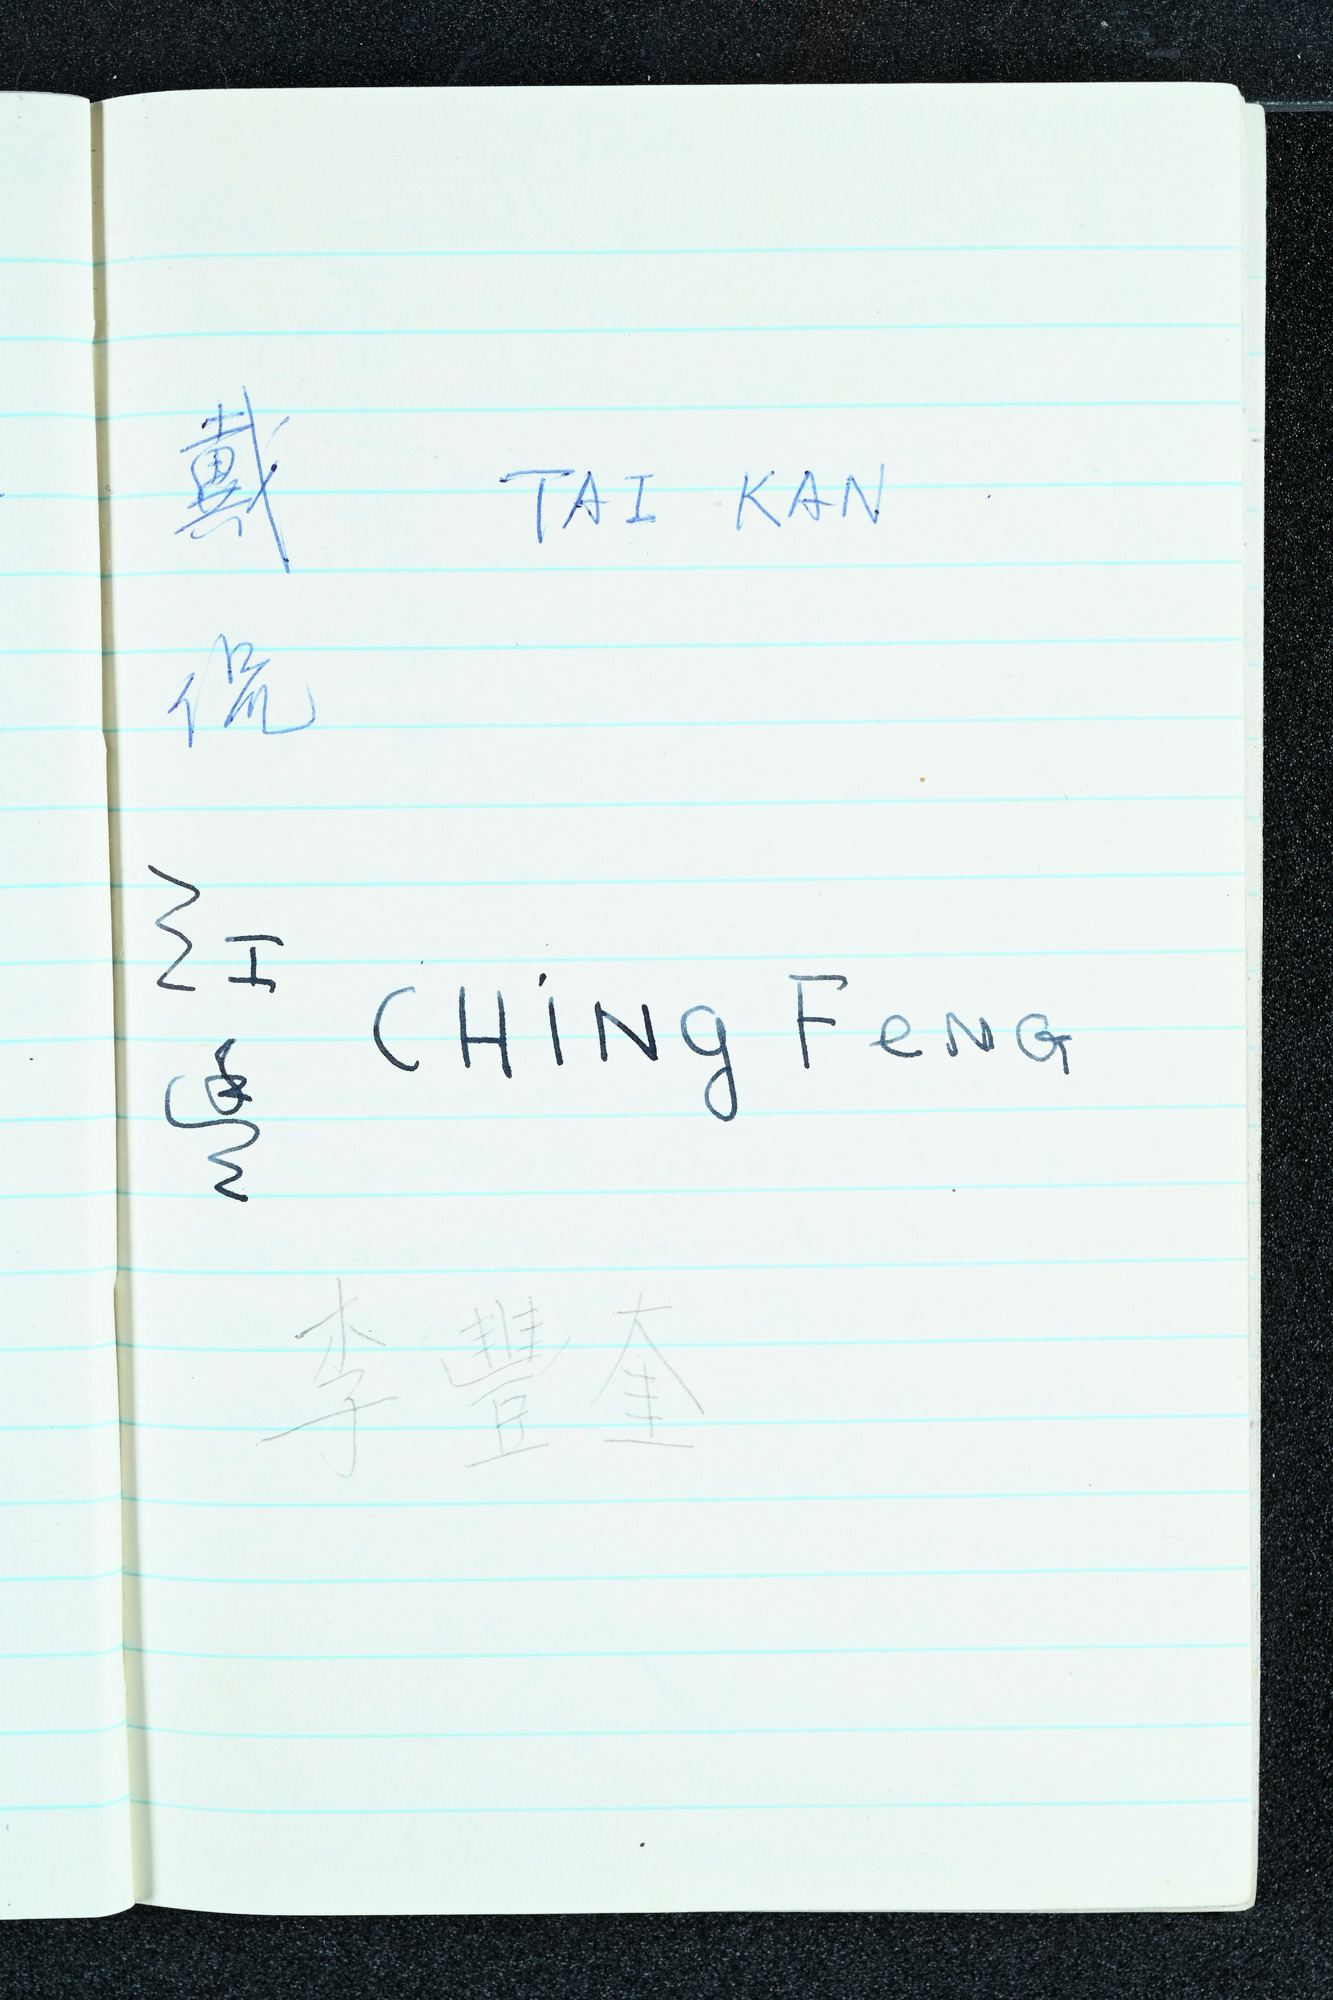 戴 TAI KAN
侃
江
CHiNg FeNG
李豐奎